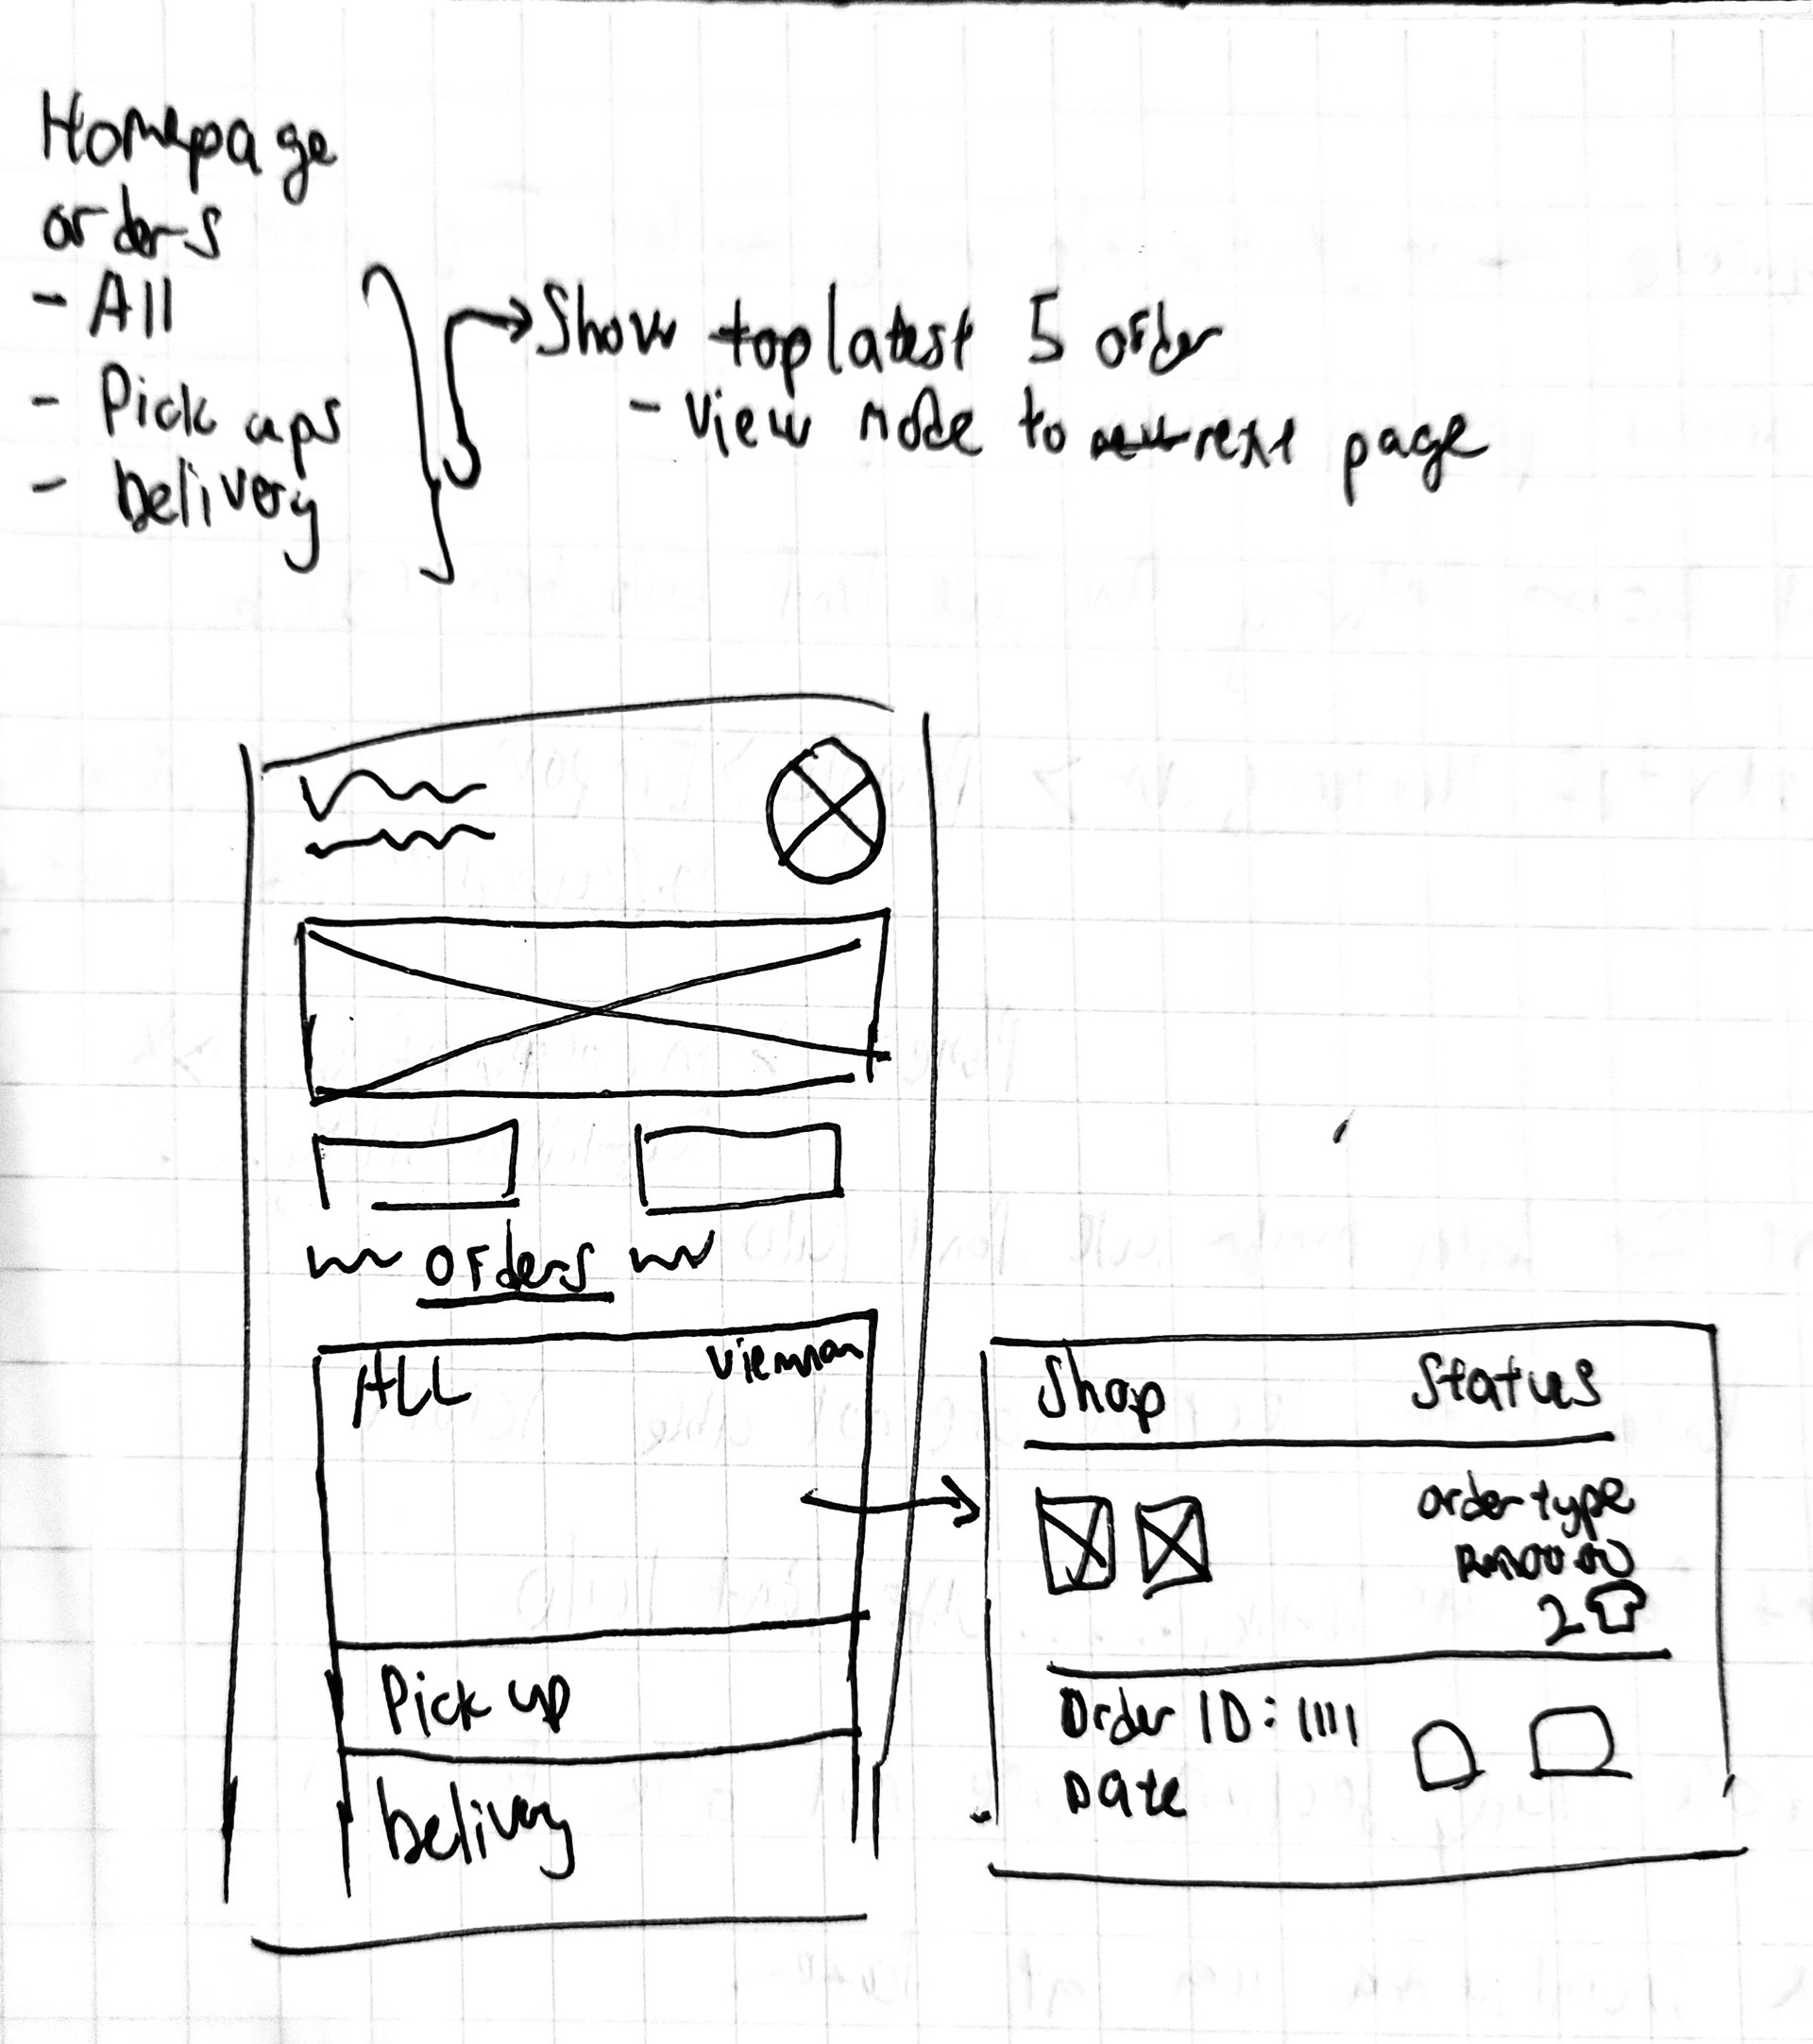 Homepage
orders
- All
- Pick ups
- Delivery
Show top latest 5 order
- View more to next page
Orders
ALL
View more
Pick up
Delivery
Shop Status
order type
2
Order ID: 1111
Date